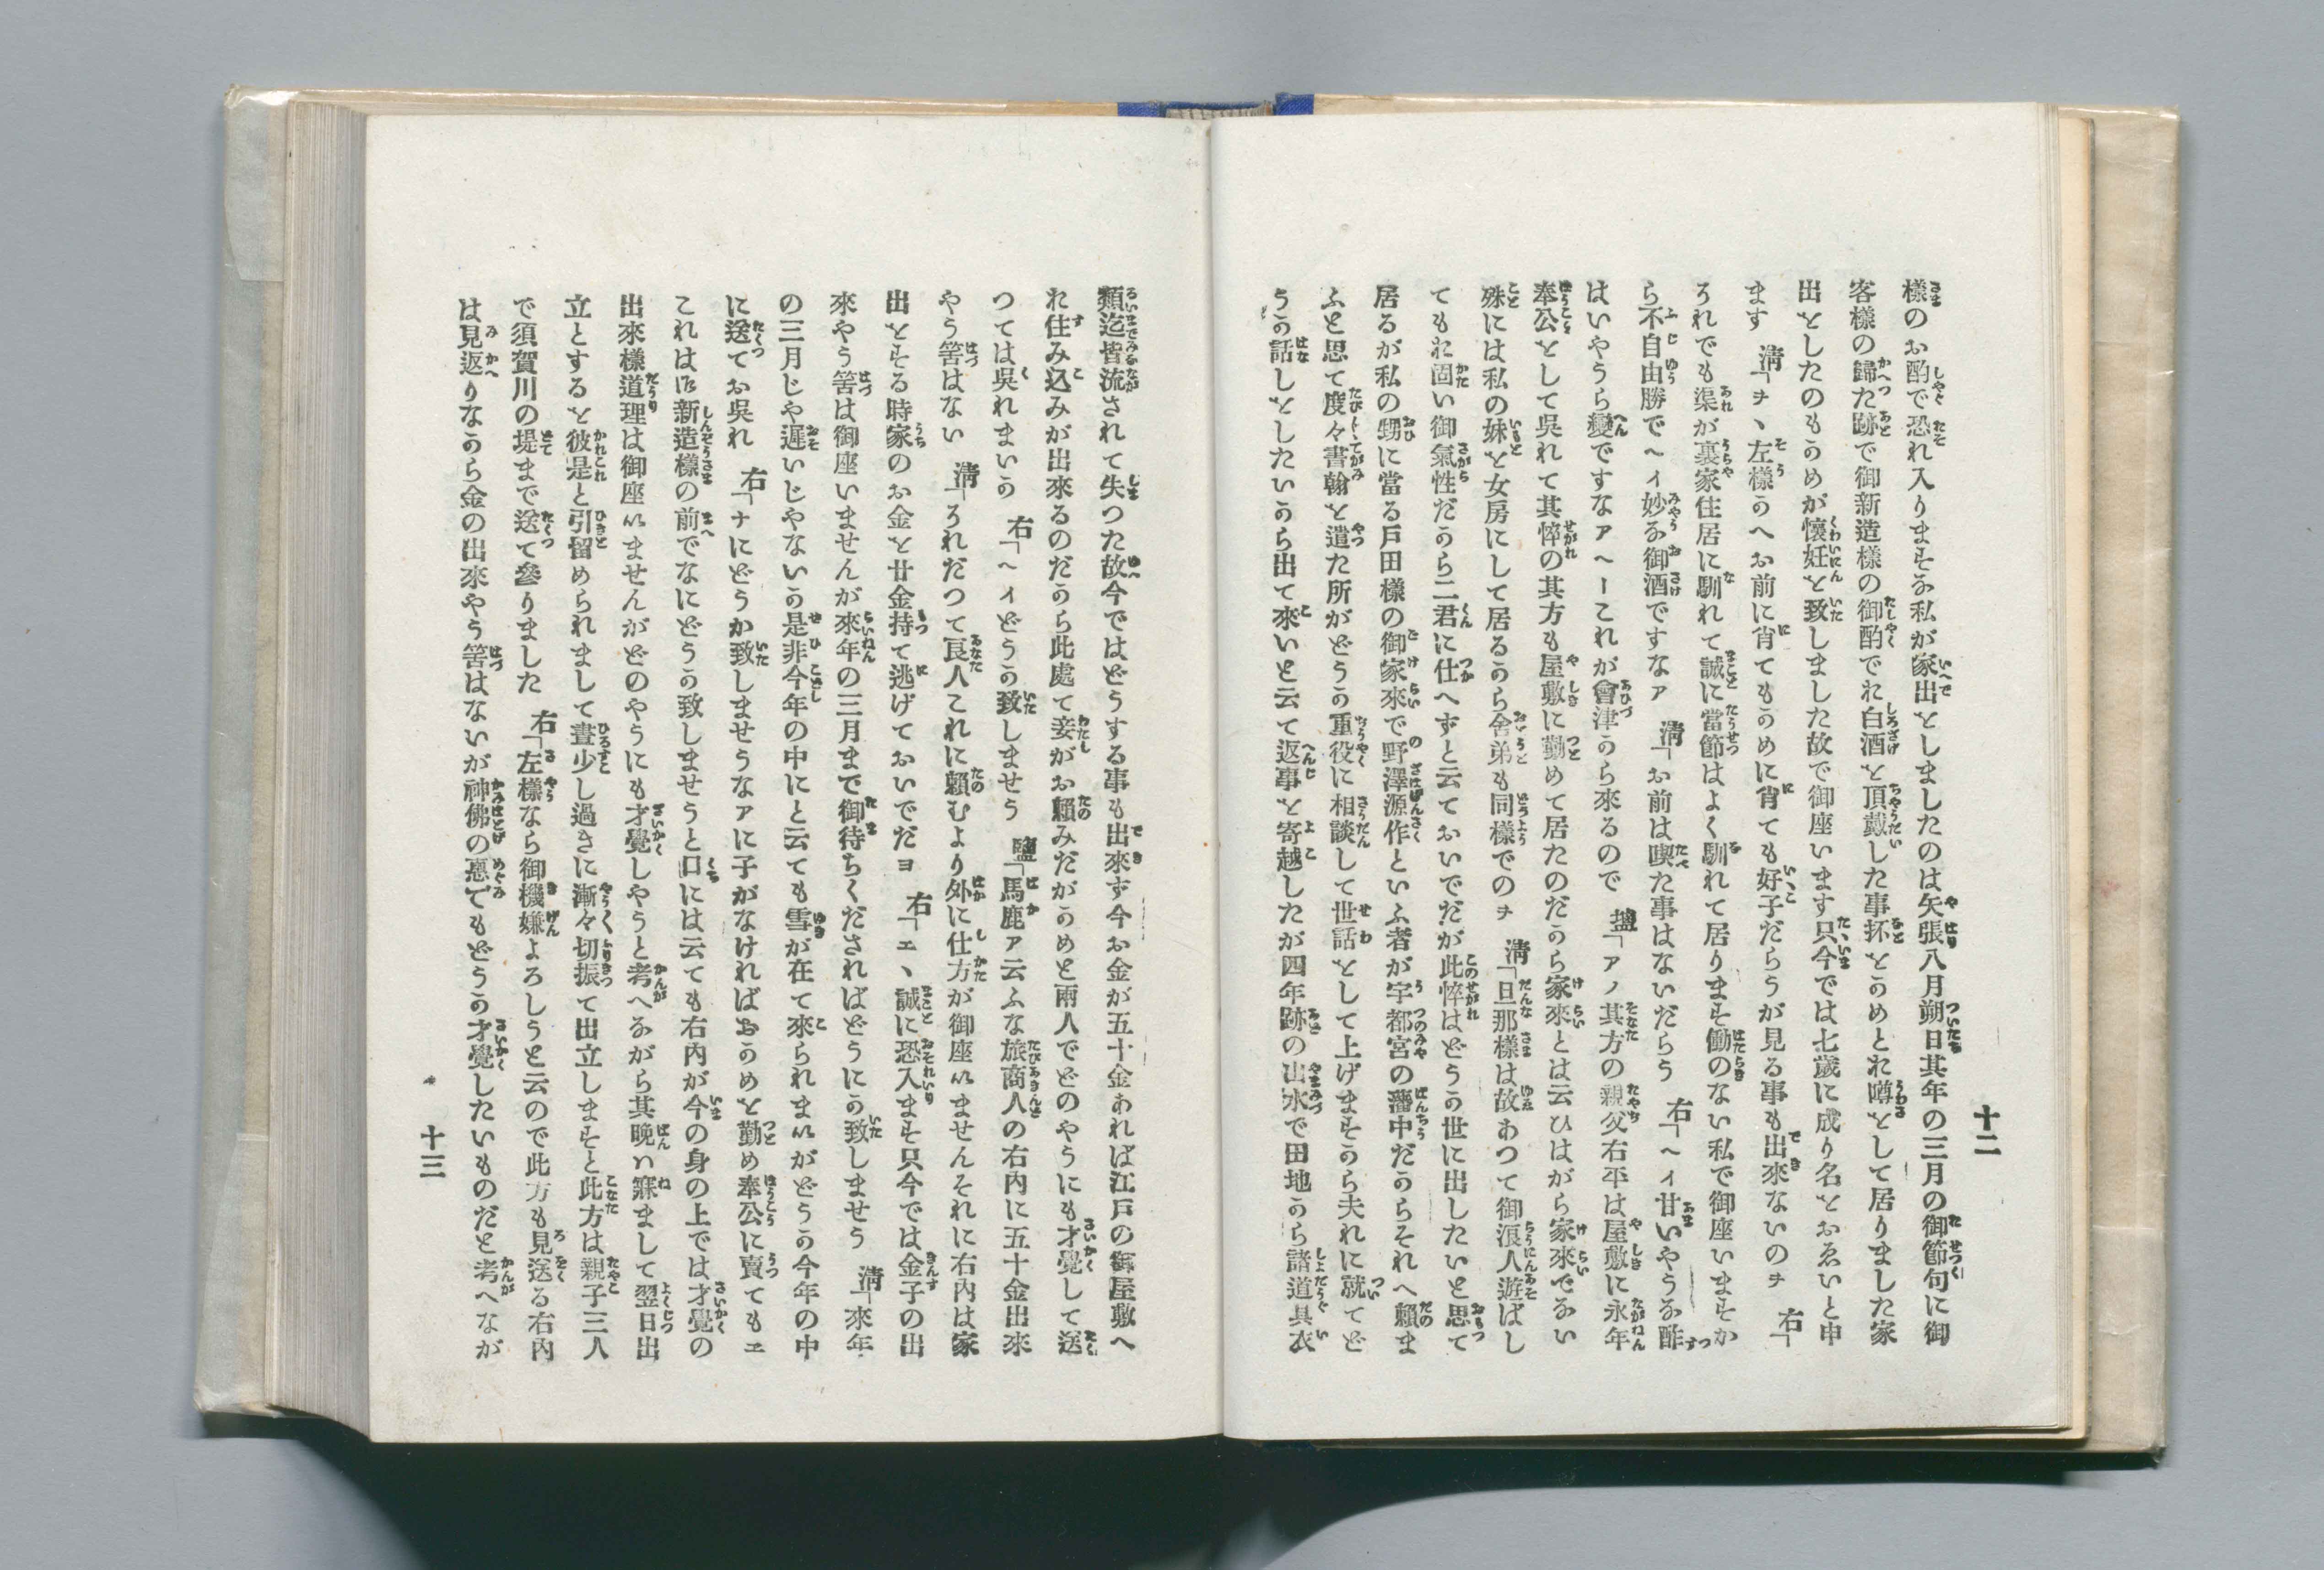 十二
樣のお酌で恐れ入りまする私が家出をしましたのは矢張八月朔日其年の三月の御節句に御
客樣の歸た跡で御新造樣の御酌でお白酒を頂戴した事抔をかめとお噂をして居りました家
出をしたのもかめが懷妊を致しました故で御座います只今では七歲に成り名をおゑいと申
ます 淸「ヲヽ左樣かへお前に肖てもかめに肖ても好子だらうが見る事も出來ないのヲ 右「
それでも渠が裏家住居に馴れて誠に當節はよく馴れて居ります働のない私で御座いますか
ら不自由勝でヘイ妙な御酒ですなァ 淸「お前は喫た事はないだらう 右「ヘイ甘いやうな酢
はいやうら變ですなァヘーこれが會津から來るので 鹽「アノ其方の親父右平は屋敷に永年
奉公をして吳れて其悴の其方も屋敷に勤めて居たのだから家來とは云ひながら家來でない
殊には私の妹を女房にして居るから舍弟も同樣でのヲ 淸「旦那樣は故あつて御浪人遊ばし
てもお固い御氣性だから二君に仕へずと云ておいでだが此悴はどうか世に出したいと思て
居るが私の甥に當る戸田樣の御家來で野澤源作といふ者が宇都宮の藩中だからそれへ賴ま
ふと思て度々書翰を遣た所がどうか重役に相談して世話をして上げますから夫れに就てど
うか話しをしたいから出て來いと云て返事を寄越したが四年跡の出水で田地から諸道具衣
類迄皆流されて失つた故今ではどうする事も出來ず今お金が五十金あれば江戸の御屋敷へ
お住み込みが出來るのだから此處て妾がお賴みだがかめと兩人でどのやうにも才覺して送
つては吳れまいか 右「ヘイどうか致しませう 鹽「馬鹿ァ云ふな旅商人の右内に五十金出來
やう筈はない 淸「それだつて良人これに賴むより外に仕方が御座いませんそれに右内は家
出をする時家のお金を廿金持て逃げておいでだヨ 右「エヽ誠に恐入ます只今では金子の出
來やう筈は御座いませんが來年の三月まで御待ちくださればどうにか致しませう 淸「來年
の三月じや遲いじやないか是非今年の中にと云ても雪が在て來られまいがどうか今年の中
に送てお吳れ 右「ナにどうか致しませうなァに子がなければおかめを勤め奉公に賣てもエ
これは(ﾏﾏ)新造樣の前でなにどうか致しませうと口には云ても右内が今の身の上では才覺の
出來樣道理は御座いませんがどのやうにも才覺しやうと考へながら其晩ハ寐まして翌日出
立とすると彼是と引留められまして晝少し過きに漸々切振て出立しますと此方は親子三人
で須賀川の堤まで送て參りました 右「左樣なら御機嫌よろしうと云ので此方も見送る右内
は見返りながら金の出來やう筈はないが神佛の惠でもどうか才覺したいものだと考へなが
十三